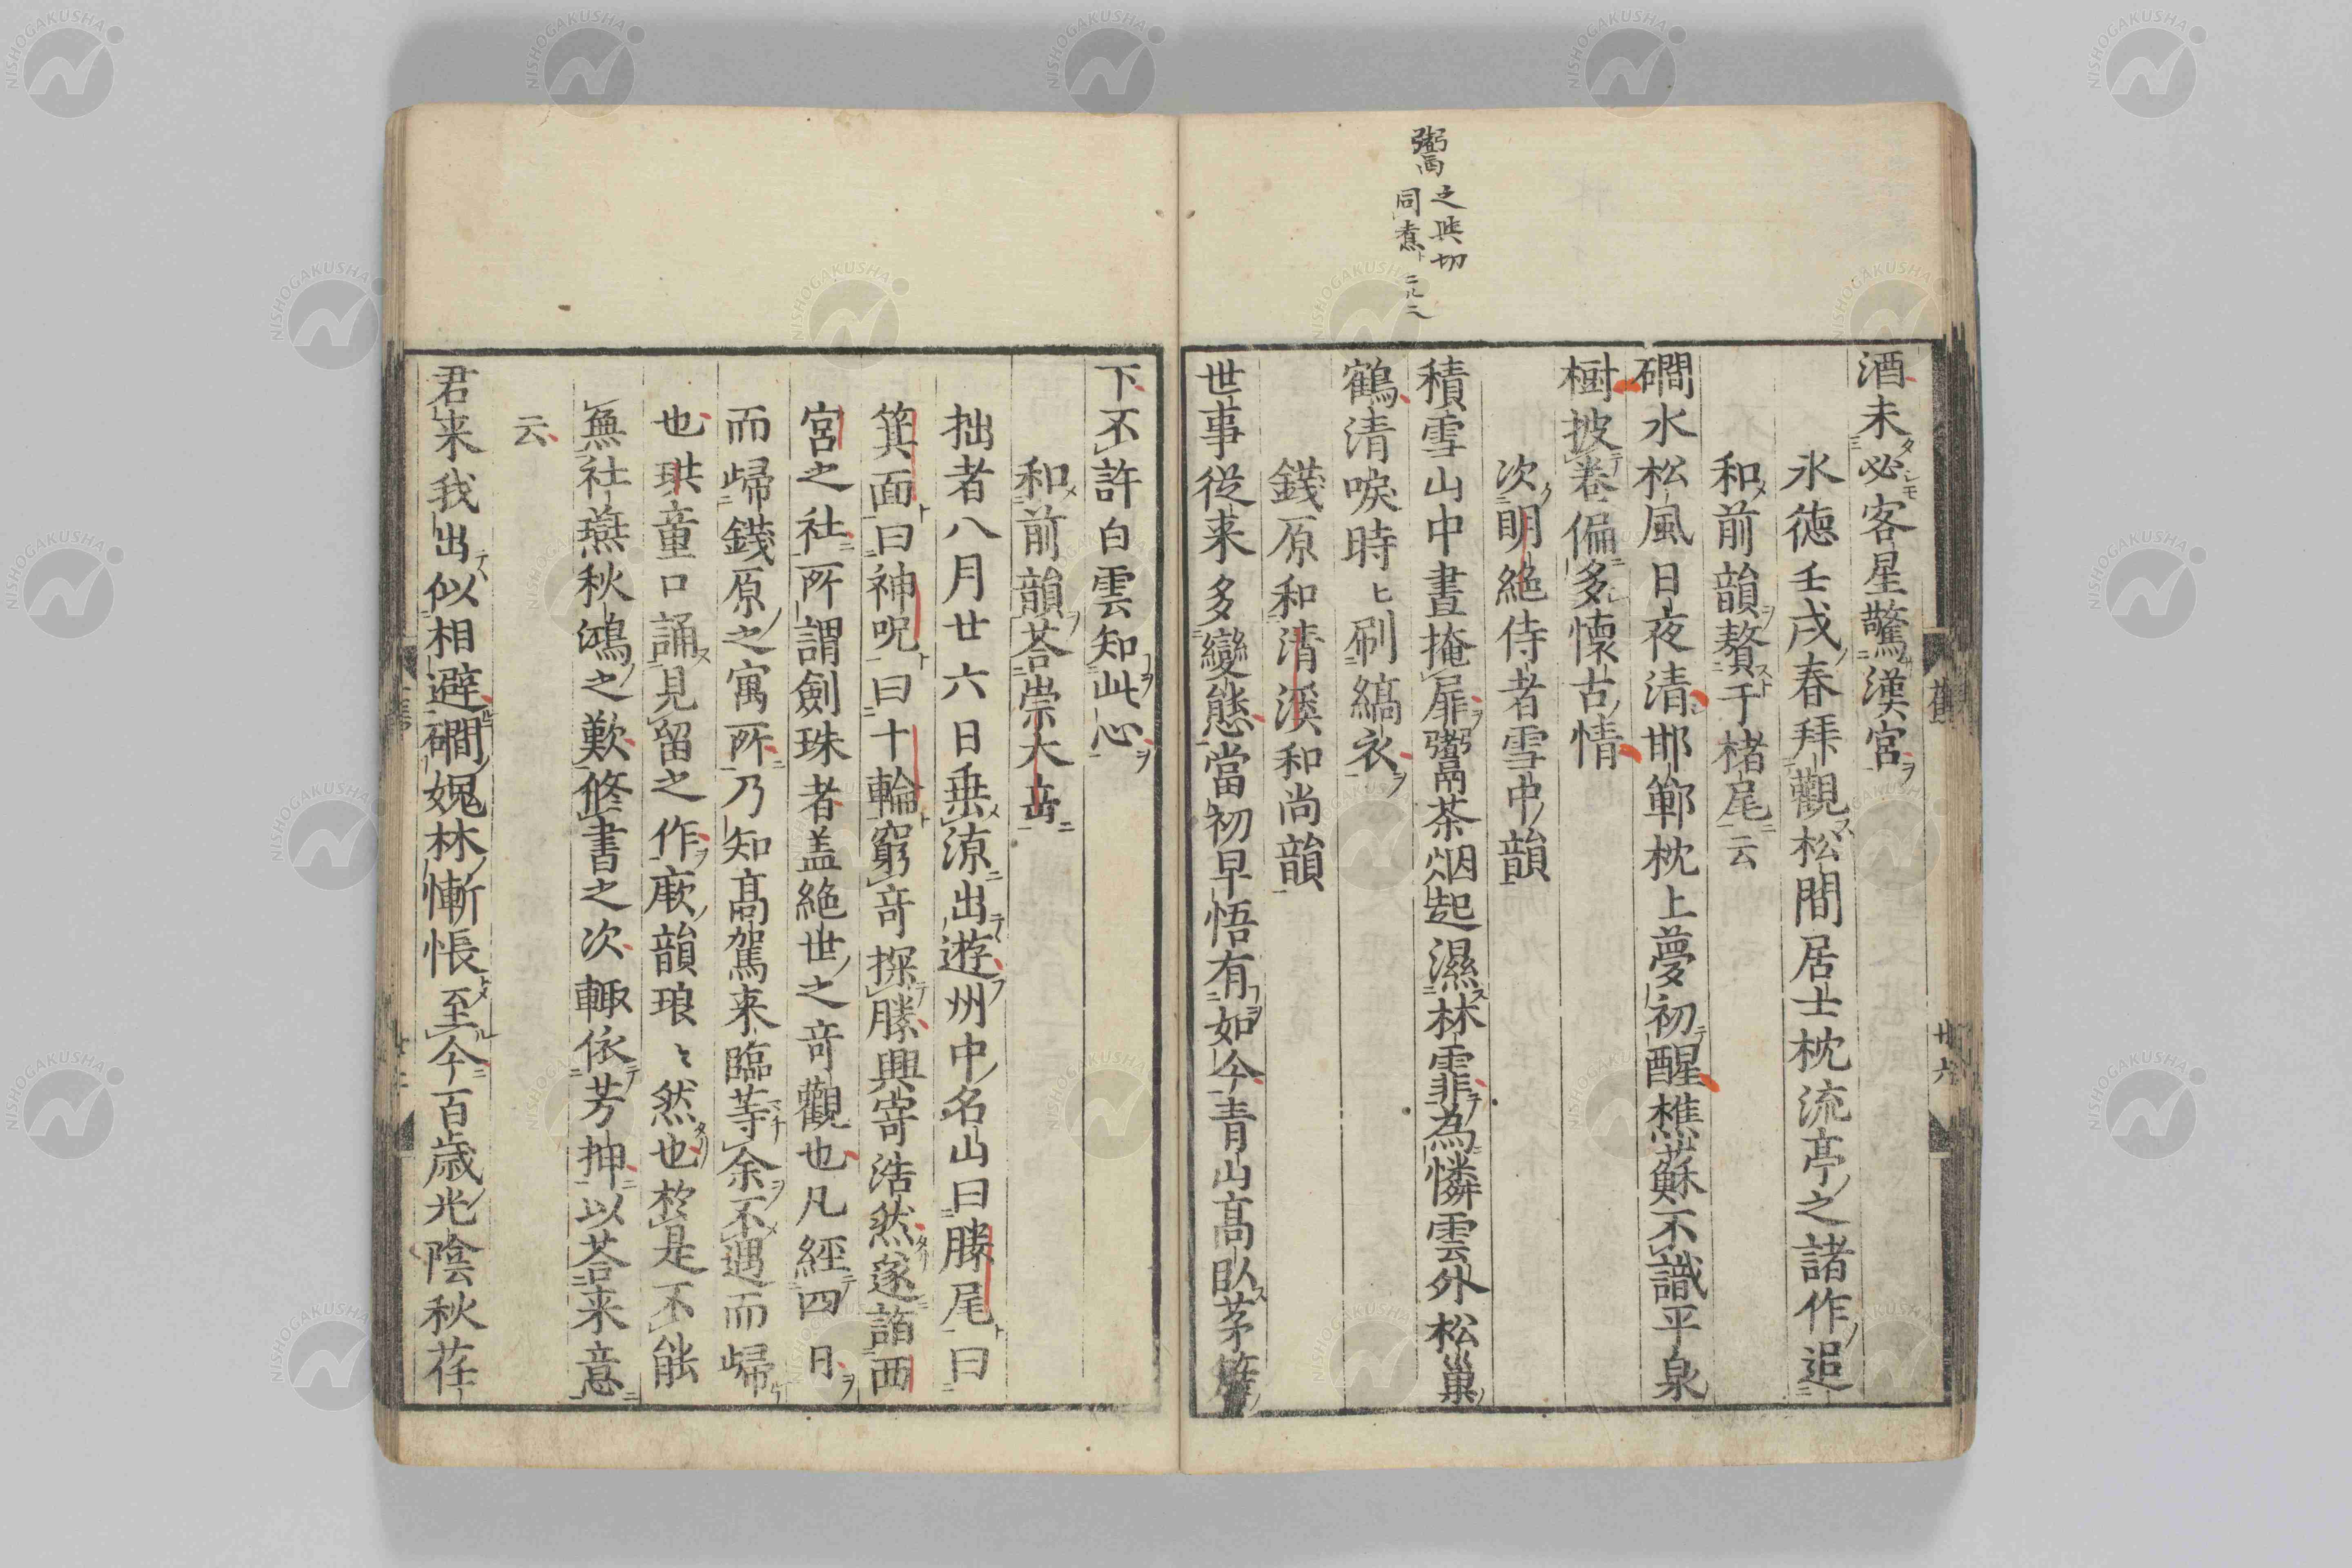 鬻 之與切
同煮ト
酒未必客星驚漢宮
永徳壬戌春拜觀松間居士枕流亭之諸作追
和前韻贅于楮尾云
磵水松風日夜清邯鄲枕上夢初醒樵蘇不識平泉
樹披卷偏多懷古情
次明絶侍者雪中韻
積雪山中晝掩扉鬻茶烟起濕林霏為憐雲外松巢
鶴清唳時ヒ刷縞衣
錢原和清溪和尚韻
世事從来多變態當初早悟有如今青山高臥茅簷
下不許白雲知此心
和前韻荅崇大岳
拙者八月廿六日乗凉出遊州中名山曰勝尾曰
箕面曰神呪曰十輪窮竒探勝興寄浩然遂詣西
宮之社所謂劍珠者盖絶世之竒觀也凡經四日
而歸錢原之寓所乃知髙駕来臨等余不遇而歸
也珙童口誦見留之作厥韻琅〻然也於是不能
無社燕秋鴻之歎修書之次輙依芳押以荅来意
云
君来我出似相避磵媿林慚悵至今百歳光陰秋荏
舊
廿六
NISHOGAKUSHA